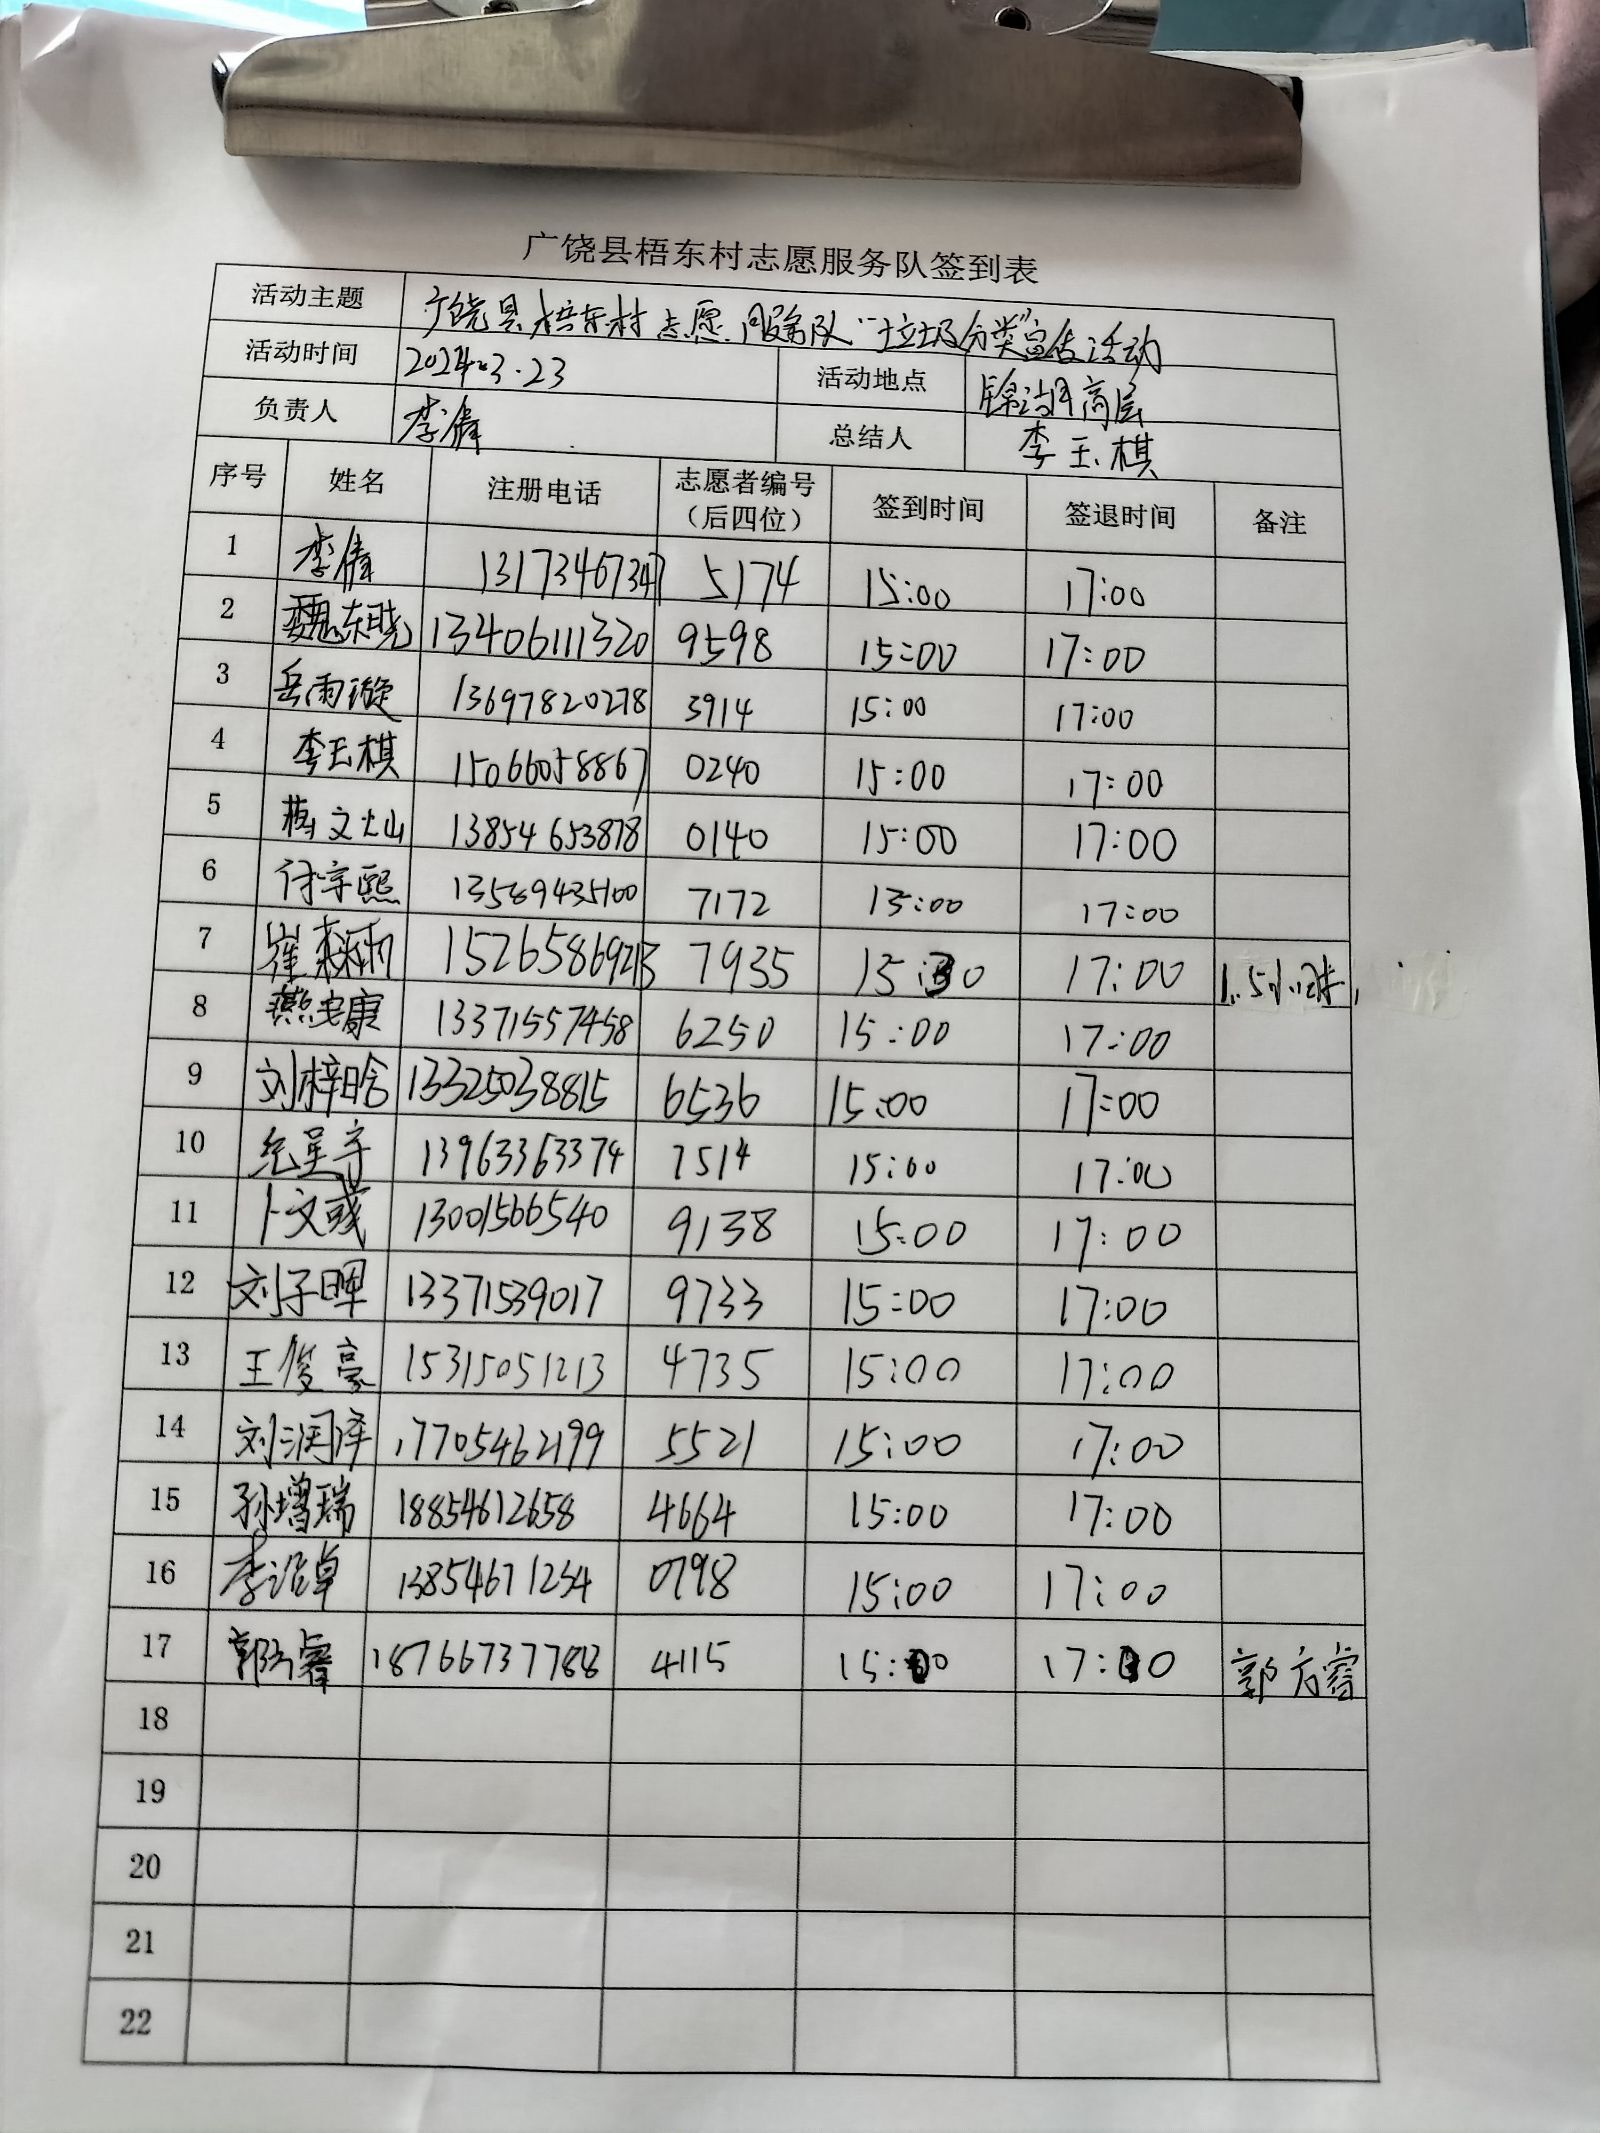 广饶县梧东村志愿服务队签到表
活动主题 广饶县梧东村志愿服务队“垃圾分类”宣传活动
活动时间 2024.3.23 活动地点 锦湖高层
负责人 李倩 总结人 李玉棋
序号 姓名 注册电话 志愿者编号（后四位） 签到时间 签退时间 备注
1 李倩 13173467347 5174 15:00 17:00
2 魏东晓 13406111320 9598 15:00 17:00
3 岳雨璇 13697820278 3914 15:00 17:00
4 李玉棋 15066058867 0240 15:00 17:00
5 13854653878 0140 15:00 17:00
6 付宇熙 13589435100 7172 15:00 17:00
7 崔森雨 15265869213 7935 15:30 17:00 1.5小时
8 燕安康 13371557458 6250 15:00 17:00
9 刘梓晗 13325038815 6536 15:00 17:00
10 13963363374 7514 15:00 17:00
11 卜文彧 13001566540 9138 15:00 17:00
12 刘子晖 13371539017 9733 15:00 17:00
13 王俊豪 15315051213 4735 15:00 17:00
14 刘润泽 17705462199 5521 15:00 17:00
15 孙增瑞 18854612658 4664 15:00 17:00
16 13854671254 0798 15:00 17:00
17 郭方睿 18766737788 4115 15:00 17:00 郭方睿
18
19
20
21
22